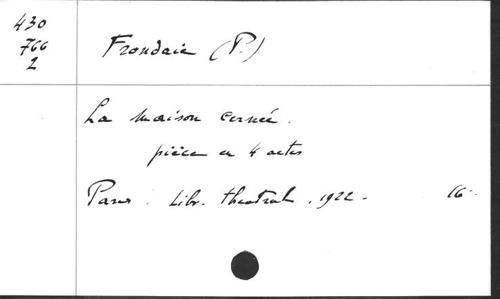 430
766
2
Frondaie (P.)
La maison cernée.
pièce en 4 actes
Paris. Libr. theatral. 1922. 16